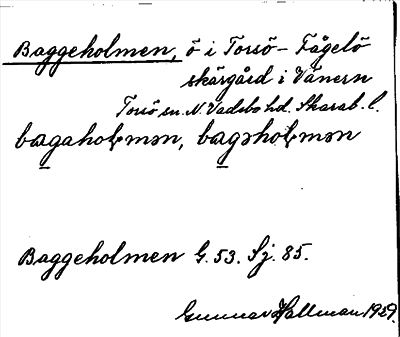 Baggeholmen, ö i Torsö-Fågelö
skärgård i Vänern
Torsö sn. N Vadsbo hd. Skarab. l.
bagahoɭmən, bagəhoɭmən
Baggeholmen G. 53. Sj. 85.
Gunnar Hallman 1929.